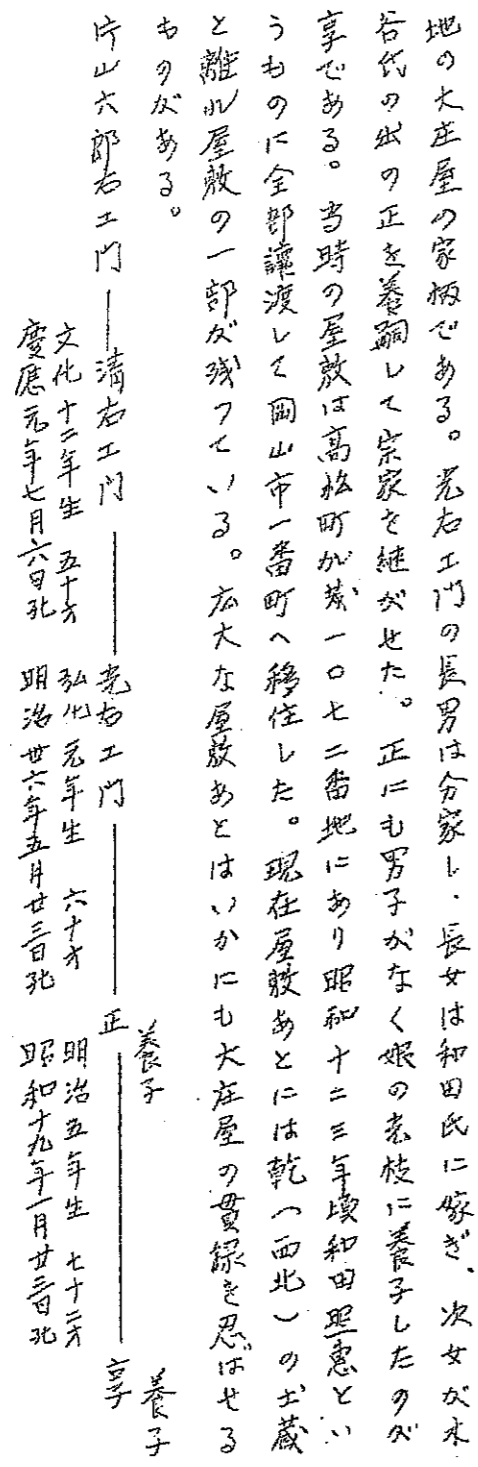 地の大庄屋の家柄である。光右エ門の長男は分家し、長女は和田氏に嫁ぎ、次女が水
谷代の出の正を養嗣して宗家を継がせた。正にも男子がなく娘の志枝に養子したのが
享である。当時の屋敷は高松町が茂一〇七二番地にあり昭和十二三年頃和田照恵とい
うものに全部譲渡して岡山市一番町へ移住した。現在屋敷あとには乾(西北)の土蔵
と離れ屋敷の一部が残っている。広大な屋敷あとはいかにも大庄屋の貫録を忍ばせる
ものがある。
片山六郎右エ門―清右エ門―光右エ門―正―享
文化十二年生 五十才
慶應元年七月六日死
弘化元年生 六十才
明治廿六年五月廿三日死
養子
明治五年生 七十二才
昭和十九年一月廿三日死
養子